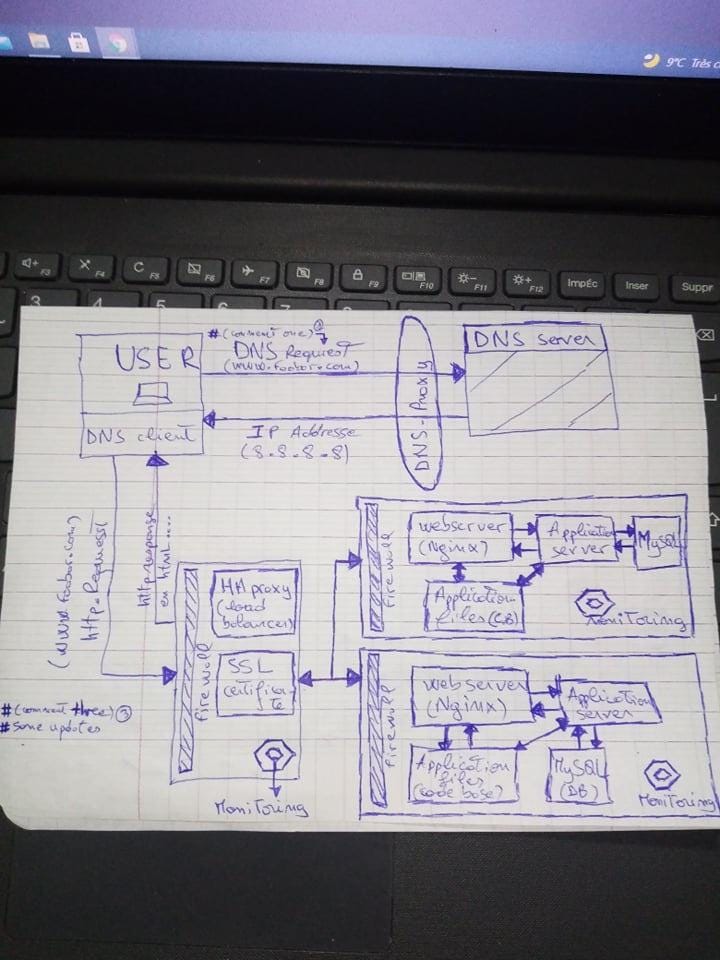 9°C Très
F3
F4
C F5
F6
F7
F8
F9
F10
F11
F12
Impéc
Inser
Suppr
3
4
5
6
7
8
#(comment one) ①
USER
DNS Request
(www.foobar.com)
DNS server
DNS client
IP Addresse
(8.8.8.8)
DNS-Proxy
(www.foobar.com)
http.Request
http response
en html....
firewall
HAproxy
(load
balancer)
SSL
certifica-
te
Monitoring
#(comment three) ③
#some updates
firewall
webserver
(Nginx)
Application
server
MySQL
Application
files (CB)
Monitoring
firewall
webserver
(Nginx)
Application
server
Application
files
(code base)
MySQL
(DB)
Monitoring